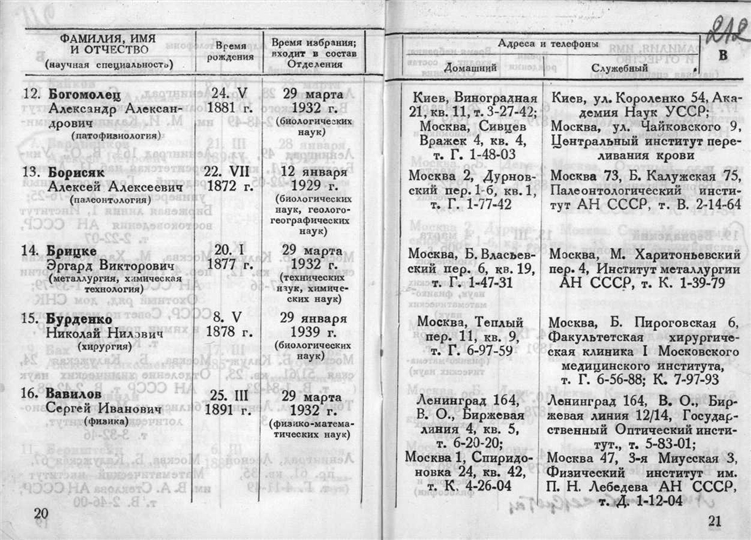 ФАМИЛИЯ, ИМЯ
И ОТЧЕСТВО
(научная специальность)
Время
рождения
Время избрания;
входит в состав
Отделения
12. Богомолец
Александр Алексан-
дрович
(патофизиология)
24. V
1881 г.
29 марта
1932 г.
(биологических
наук)
13. Борисяк
Алексей Алексеевич
(палеонтология)
22. VII
1872 г.
12 января
1929 г.
(биологических
наук, геолого-
географических
наук)
14. Брицке
Эргард Викторович
(металлургия, химическая
технология)
20. I
1877 г.
29 марта
1932 г.
(технических
наук, химиче-
ских наук)
15. Бурденко
Николай Нилович
(хирургия)
8. V
1878 г.
29 января
1939 г.
(биологических
наук)
16. Вавилов
Сергей Иванович
(физика)
25. III
1891 г.
29 марта
1932 г.
(физико-матема-
тических наук)
20
212
Адреса и телефоны
В
Домашний
Служебный
Киев, Виноградная
21, кв. 11, т. 3-27-42;
Москва, Сивцев
Вражек 4, кв. 4,
т. Г. 1-48-03
Киев, ул. Короленко 54, Ака-
демия Наук УССР;
Москва, ул. Чайковского 9,
Центральный институт пере-
ливания крови
Москва 2, Дурнов-
ский пер. 1-б, кв. 1,
т. Г. 1-77-42
Москва 73, Б. Калужская 75,
Палеонтологический инсти-
тут АН СССР, т. В. 2-14-64
Москва, Б. Власьев-
ский пер. 6, кв. 19,
т. Г. 1-47-31
Москва, М. Харитоньевский
пер. 4, Институт металлургии
АН СССР, т. К. 1-39-79
Москва, Теплый
пер. 11, кв. 9,
т. Г. 6-97-59
Москва, Б. Пироговская 6,
Факультетская хирургиче-
ская клиника I Московского
медицинского института,
т. Г. 6-56-88; К. 7-97-93
Ленинград 164,
В. О., Биржевая
линия 4, кв. 5,
т. 6-20-20;
Москва 1, Спиридо-
новка 24, кв. 42,
т. К. 4-26-04
Ленинград 164, В. О., Бир-
жевая линия 12/14, Государ-
ственный Оптический инсти-
тут., т. 5-83-01;
Москва 47, 3-я Миусская 3,
Физический институт им.
П. Н. Лебедева АН СССР,
т. Д. 1-12-04
21